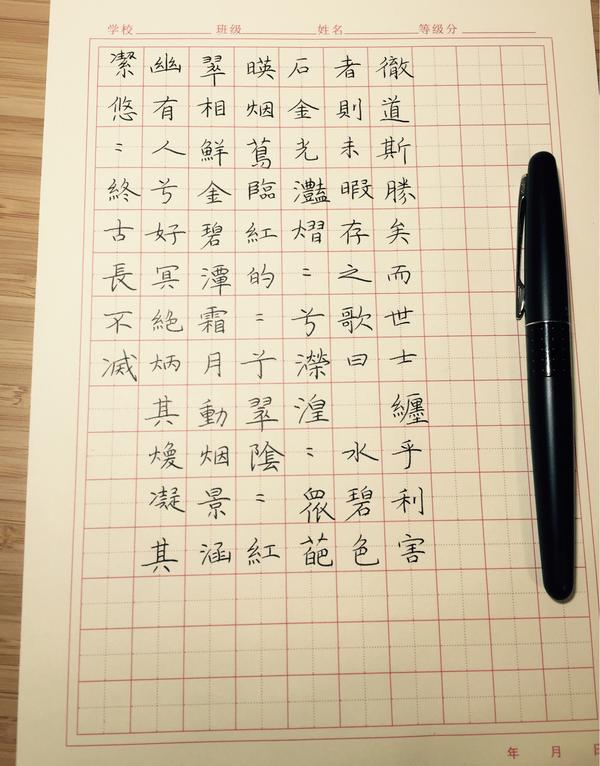 学校 班级 姓名 等级分
徹道斯勝矣而世士纏乎利害
者則未暇存之歌曰水碧色
石金光灩熠〻兮濴湟〻眾葩
暎烟蔦臨紅的〻兮翠陰〻紅
翠相鮮金碧潭霜月動烟景涵
幽有人兮好冥絕炳其煥凝其
潔悠〻終古長不滅
年 月 日